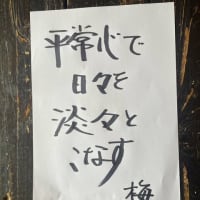 平常心で
日々を
淡々と
こなす
梅